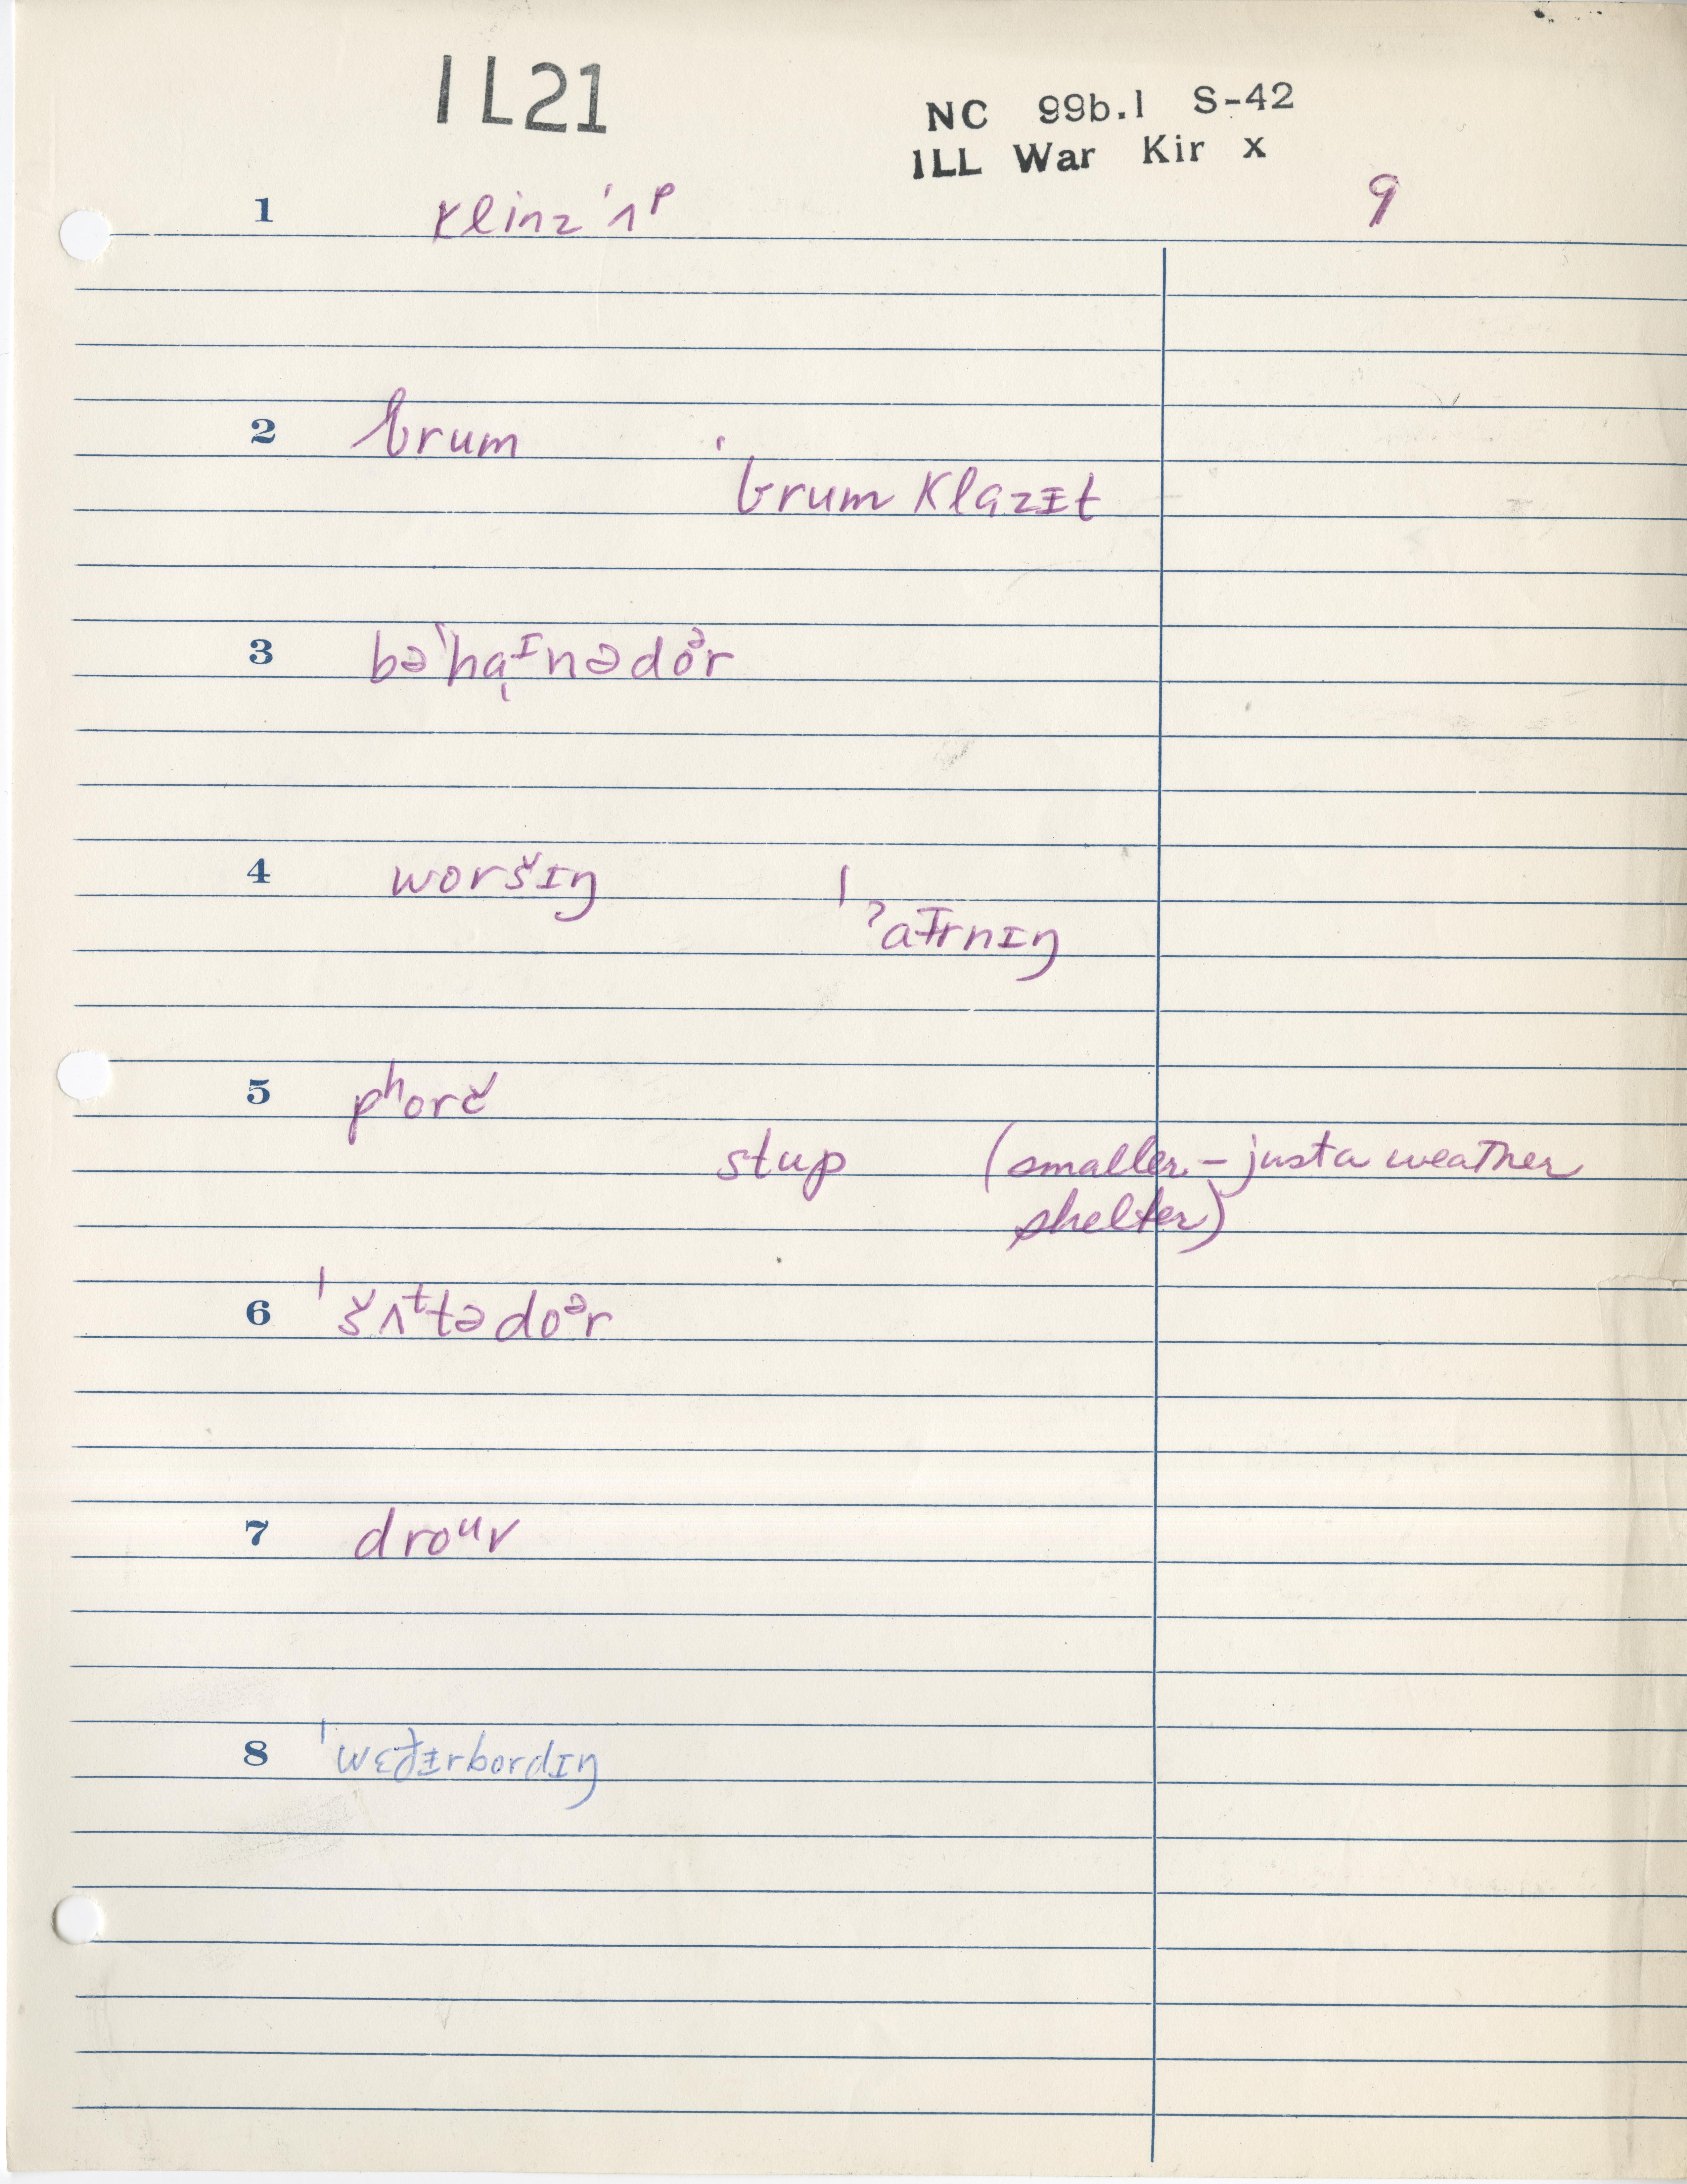 IL21
NC 99b.1 S-42
ILL War Kir x
9
1 klinz ˈʌᵖ
2 brum
ˈbrum klazɪt
3 bəˈhaᶦnədoᵊr
4 woršɪŋ
ˈˀaɪ̵rnɪŋ
5 pʰorč
stup (smaller – just a weather
shelter)
6 ˈšʌᵗtədoᵊr
7 droᵘv
8 ˈwɛđɪ̵rbordɪŋ